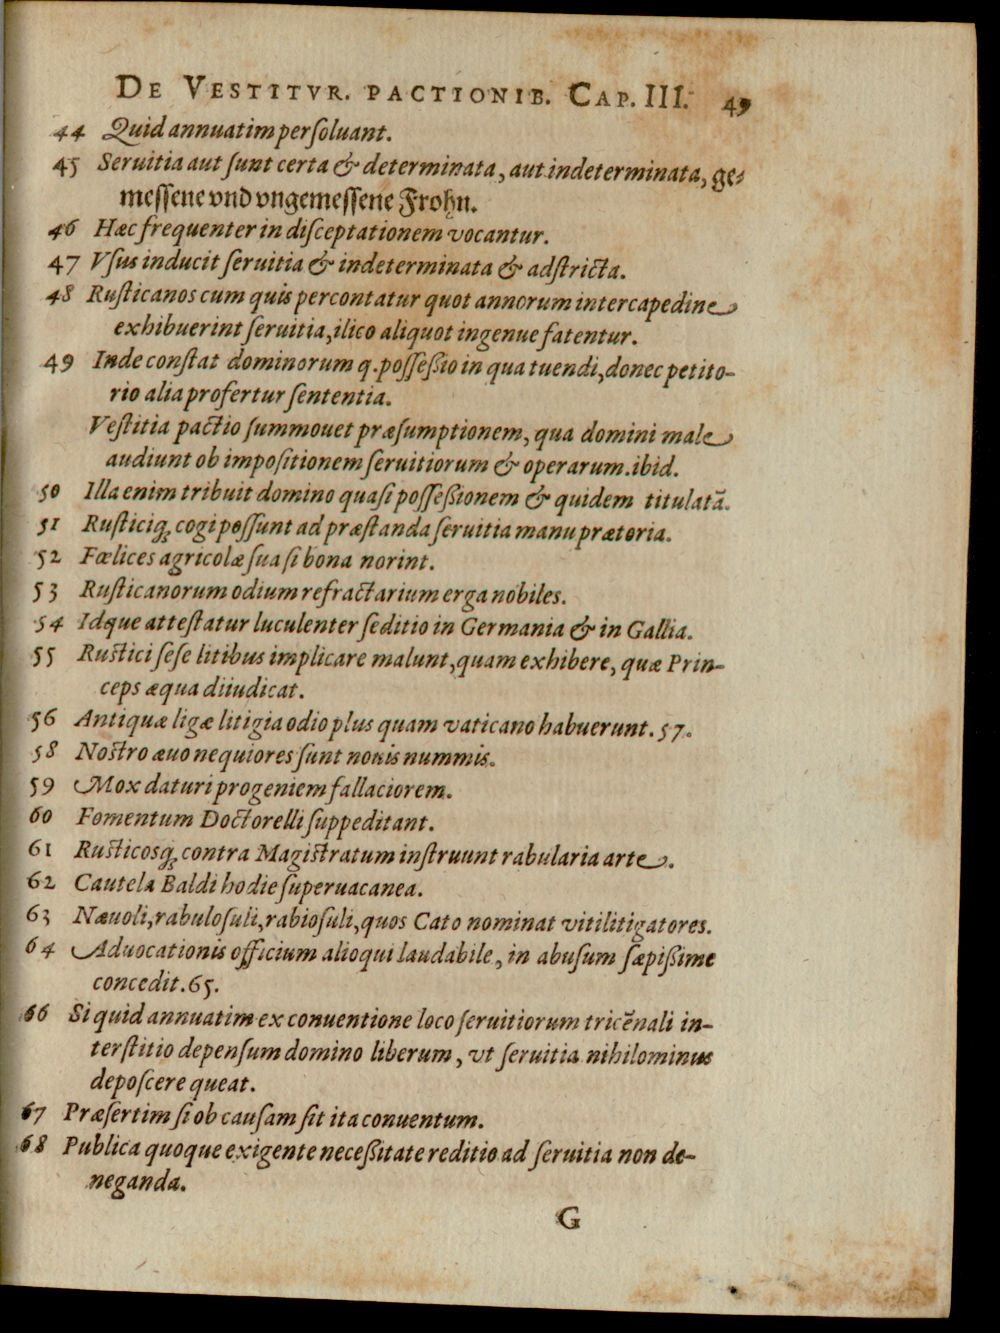 DE VESTITVR. PACTIONIB. CAP. III. 49
44 Quid annuatim persoluant.
45 Seruitia aut sunt certa & determinata, aut indeterminata, ge-
messene vnd vngemessene Frohn.
46 Hæc frequenter in disceptationem vocantur.
47 Vsus inducit seruitia & indeterminata & adstricta.
48 Rusticanos cum quis percontatur quot annorum intercapedine
exhibuerint seruitia, ilico aliquot ingenue fatentur.
49 Inde constat dominorum q. possessio in qua tuendi, donec petito-
rio alia profertur sententia.
Vestitia pactio summouet præsumptionem, qua domini male
audiunt ob impositionem seruitiorum & operarum. ibid.
50 Illa enim tribuit domino quasi possessionem & quidem titulatã.
51 Rusticiq́; cogi possunt ad præstanda seruitia manu prætoria.
52 Fœlices agricolæ sua si bona norint.
53 Rusticanorum odium refractarium erga nobiles.
54 Idque attestatur luculenter seditio in Germania & in Gallia.
55 Rustici sese litibus implicare malunt, quam exhibere, quæ Prin-
ceps æqua diiudicat.
56 Antiquæ ligæ litigia odio plus quam vaticano habuerunt. 57.
58 Nostro æuo nequiores sunt nouis nummis.
59 Mox daturi progeniem fallaciorem.
60 Fomentum Doctorelli suppeditant.
61 Rusticosq́; contra Magistratum instruunt rabularia arte.
62 Cautela Baldi hodie superuacanea.
63 Næuoli, rabulosuli, rabiosuli, quos Cato nominat vitilitigatores.
64 Aduocationis officium alioqui laudabile, in abusum sæpissime
concedit. 65.
66 Si quid annuatim ex conuentione loco seruitiorum tricẽnali in-
terstitio depensum domino liberum, vt seruitia nihilominus
deposcere queat.
67 Præsertim si ob causam sit ita conuentum.
68 Publica quoque exigente necessitate reditio ad seruitia non de-
neganda.
G